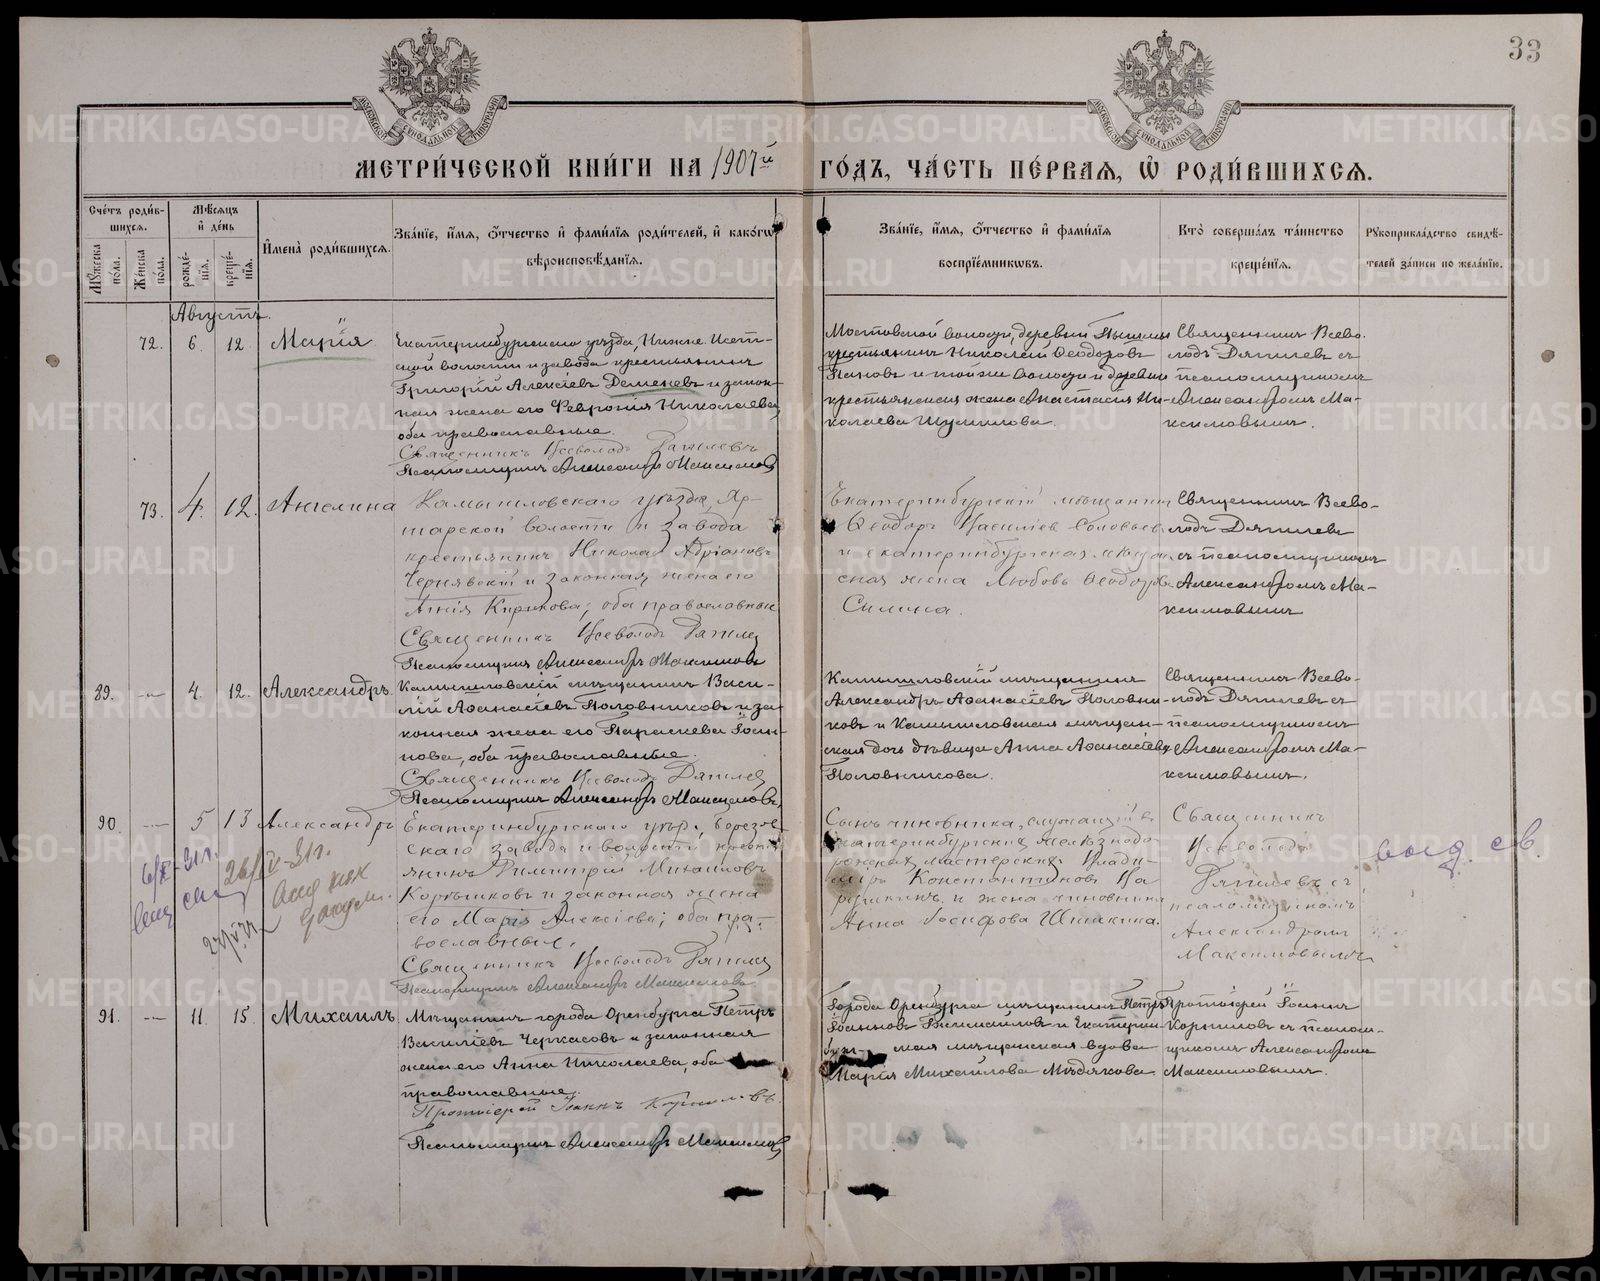 33
МЕТРИ́ЧЕСКОЙ КНИ́ГИ НА 1907й ГО́ДЪ, ЧА́СТЬ ПЕ́РВАѦ, Ѡ РОДИ́ВШИХСѦ.
Сче́тъ роди́вшихсѧ.
Мꙋ́жеска по́ла.
Же́нска по́ла.
Мѣ́сѧцъ и де́нь
рожде́нїѧ.
креще́нїѧ.
Имена̀ роди́вшихсѧ.
Зва́нїе, и́мѧ, о́тчество и фами́лїѧ роди́телей, и како́гѡ вѣроисповѣ́данїѧ.
Зва́нїе, и́мѧ, о́тчество и фами́лїѧ воспрїе́мникѡвъ.
Кто̀ соверша́лъ та́инство креще́нїѧ.
Рꙋкоприкла́дство свидѣ́телей за́писи по жела́нїю.
Августъ.
72. 6. 12. Марія
Екатеринбургскаго уѣзда, Нижне Исет-
ской волости и завода крестьянинъ
Григорій Алексіевъ Деменевъ и закон-
ная жена его Феврония Николаева,
оба православные.
Священникъ Всеволодъ Дягилевъ
Псаломщикъ Александръ Максимовъ
Мостовской волости, деревни
крестьянинъ Николай Ѳеодоровъ
Пановъ и тойже волости и деревни
крестьянская жена Анастасія Ни-
колаева Шумилова.
Священникъ Всево-
лодъ Дягилевъ съ
псаломщикомъ
Александромъ Ма-
ксимовымъ.
73. 4. 12. Ангелина
Камышловскаго уѣзда,
волости и завода
крестьянинъ Николай Адріановъ
Чернявскій и законная жена его
Анна Кирикова; оба православные
Священникъ Всеволодъ Дягилевъ
Псаломщикъ Александръ Максимовъ
Екатеринбургскій мѣщанинъ
Ѳеодоръ Васильевъ Соловьевъ
и екатеринбургская мѣщан-
ская жена Любовь Ѳеодорова
Силина.
Священникъ Всево-
лодъ Дягилевъ
съ псаломщикомъ
Александромъ Ма-
ксимовымъ
89. — 4. 12. Александръ
Камышловскій мѣщанинъ Васи-
лій Аѳанасіевъ Половниковъ и за-
конная жена его Параскева Іоан-
нова, оба православные.
Священникъ Всеволодъ Дягилевъ
Псаломщикъ Александръ Максимовъ
Камышловскій мѣщанинъ
Александръ Аѳанасіевъ Половни-
ковъ и Камышловская мѣщан-
ская дочь дѣвица Анна Аѳанасіева
Половникова.
Священникъ Всево-
лодъ Дягилевъ съ
псаломщикомъ
Александромъ Ма-
ксимовымъ.
90. — 5 13 Александръ
Екатеринбургскаго уѣз., Березов-
скаго завода и волости крестья-
янинъ Димитрій Михайловъ
и законная жена
его Марія Алексіева; оба пра-
вославные.
Священникъ Всеволодъ Дягилевъ
Псаломщикъ Александръ Максимовъ
Сынъ чиновника, служащій въ
Екатеринбургскихъ желѣзнодо-
рожныхъ мастерскихъ Влади-
міръ Константиновъ
и жена чиновника
Анна Іосифова Шишкина.
Священникъ
Всеволодъ
Дягилевъ съ
псаломщикомъ
Александромъ
Максимовымъ
выд. св.
91. — 11. 15. Михаилъ
Мѣщанинъ города Оренбурга Петръ
Василіевъ Черкасовъ и законная
жена его Анна Николаева, оба
православные.
Протоіерей Іоаннъ Корниловъ.
Псаломщикъ Александръ Максимовъ
Города Оренбурга мѣщанинъ Петръ
Іоанновъ и Екатерин-
мѣщанская вдова
Марія Михайлова Мѣдякова
Протоіерей Іоаннъ
Корниловъ съ псалом-
щикомъ Александромъ
Максимовымъ.
METRIKI.GASO-URAL.RU